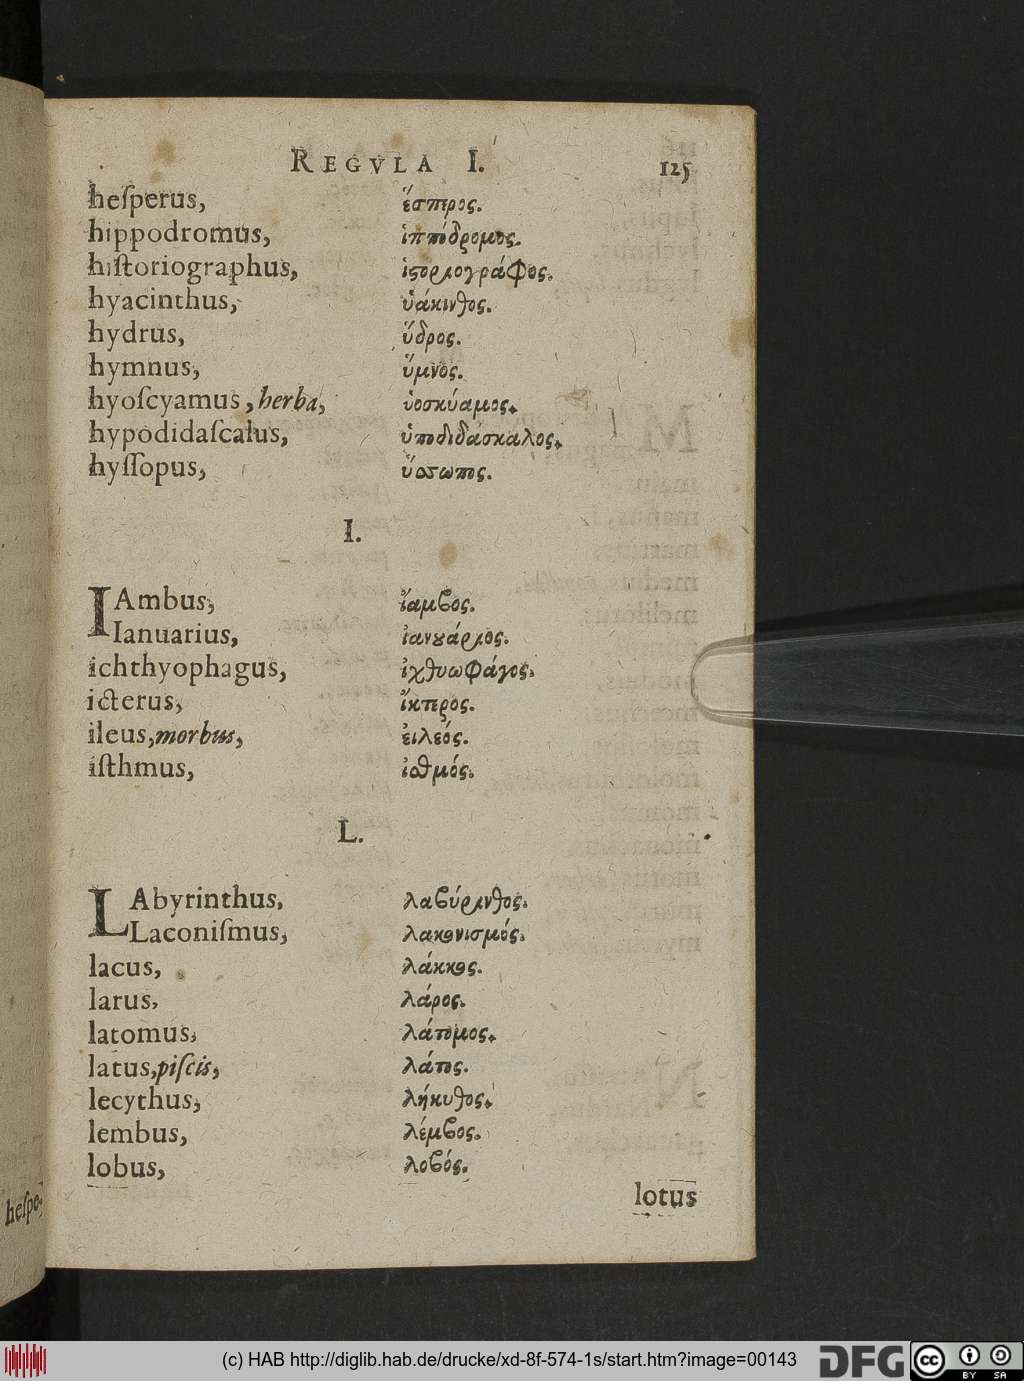 REGVLA I. 125
heſperus, ἕσπερος.
hippodromus, ἱππόδρομος.
hiſtoriographus, ἱςοριογράφος.
hyacinthus, ὑάκινθος.
hydrus, ὕδρος.
hymnus, ὕμνος.
hyoſcyamus, herba, ὑοσκύαμος.
hypodidaſcalus, ὑποδιδάσκαλος.
hyſſopus, ὕσσωπος.
I.
IAmbus, ἴαμβος.
Ianuarius, ἰανȣάριος.
ichthyophagus, ἰχθυωφάγος.
icterus, ἴκτερος.
ileus, morbus, ἐιλεός.
iſthmus, ἰσθμός.
L.
LAbyrinthus, λαβύρινθος.
Laconiſmus, λακονισμός.
lacus, λάκκος.
larus, λάρος.
latomus, λάτομος.
latus, piſcis, λάτος.
lecythus, λήκυθος.
lembus, λέμβος.
lobus, λοβός.
lotus
heſpe-
(c) HAB http://diglib.hab.de/drucke/xd-8f-574-1s/start.htm?image=00143
DFG
cc BY SA